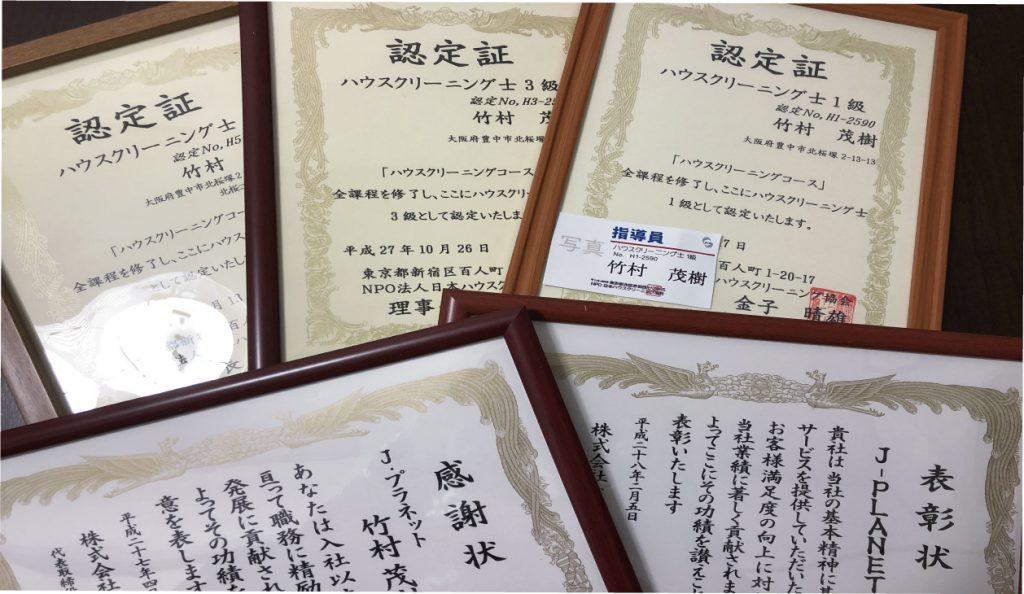 認定証
ハウスクリーニング士
認定No, H5
竹村
大阪府豊中市北桜塚2
「ハウスクリーニングコース
全課程を修了し、ここにハウスクリ
として認定いたし
月 13
認定証
ハウスクリーニング士 3 級
認定No, H3-25
竹村 茂
「ハウスクリーニングコース」
全課程を修了し、ここにハウスクリー
3 級として認定いたしま
平成 27 年 10 月 26 日
東京都新宿区百人町
NPO法人日本ハウスク
理事
認定証
ハウスクリーニング士 1 級
認定No, H1-2590
竹村 茂樹
大阪府豊中市北桜塚 2-13-13
「ハウスクリーニングコース」
全課程を修了し、ここにハウスクリーニング士
1 級として認定いたします。
7 日
百人町 1-20-17
ハウスクリーニング協会
金子 晴雄
写真
指導員
ハウスクリーニング士 1級
No. H1-2590
竹村 茂樹
感謝状
J・プラネット
竹村 茂
あなたは入社以
亘って職務に精励
発展に貢献され
よってその功績を
意を表します
平成二十七年四
株式会社
代表取締役
表彰状
J-PLANET
貴社は当社の基本精神に
サービスを提供していただいた
お客様満足度の向上に対
当社業績に著しく貢献されま
よってここにその功績を讃えこ
表彰いたします
平成二十八年二月五日
株式会社